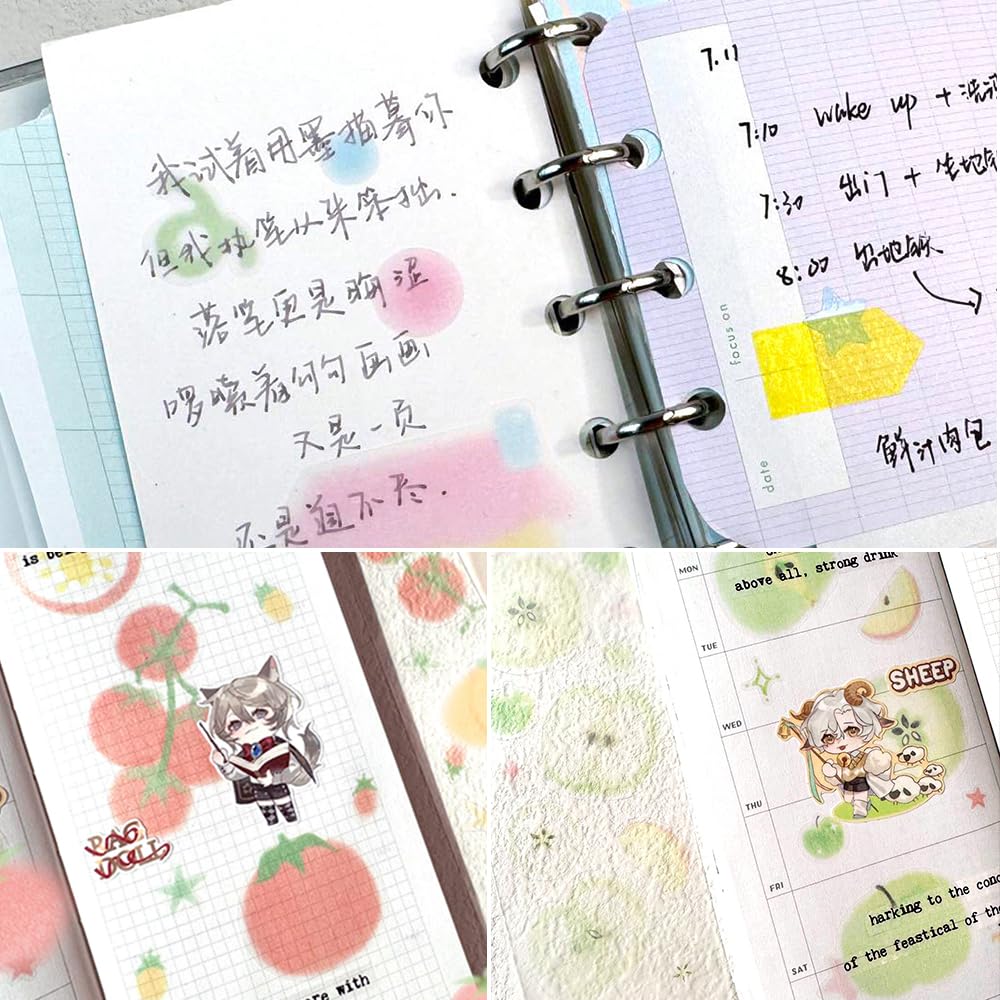 我试着用墨描摹你
但我执笔从来笨拙.
落笔更是晦涩
啰嗦着勾勾画画
又是一页
不是道不尽.
7.11
7:10 wake up + 洗
7:30 出门 + 坐地
8:00 出地铁
focus on
date
鲜汁肉包
is be
RAG
DOLL
are with
MON
above all, strong drink
TUE
SHEEP
WED
THU
FRI
harking to the conc
of the feastical of the
SAT